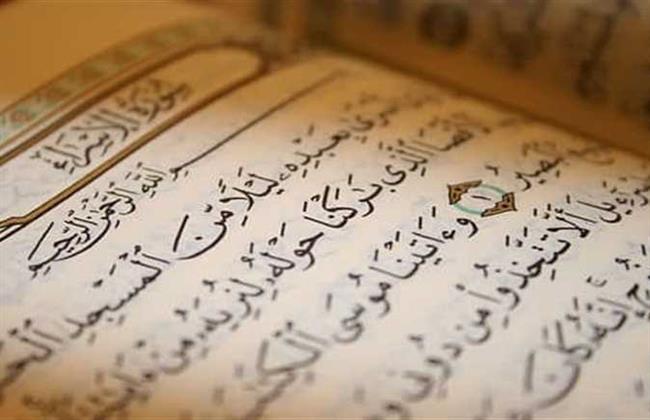 سُورَةُ الإِسْرَاءِ
اللَّهِ الرَّحْمَٰنِ الرَّحِيمِ
بِعَبْدِهِۦ لَيْلًا مِّنَ ٱلْمَسْجِدِ
ٱلَّذِى بَٰرَكْنَا حَوْلَهُۥ لِنُرِيَهُۥ مِنْ ءَايَٰتِنَا
ٱلْبَصِيرُ ١ وَءَاتَيْنَا مُوسَى ٱلْكِتَٰبَ
أَلَّا تَتَّخِذُوا۟ مِن دُونِى
إِنَّهُۥ كَانَ